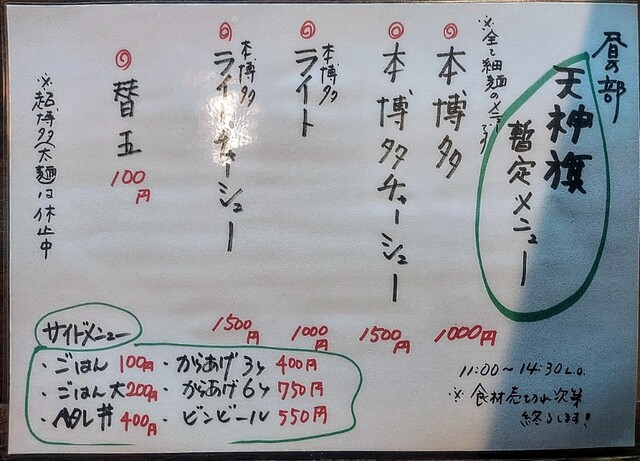 昼の部
天神旗
暫定メニュー
※全て細麺のメニューです
本博多
1000円
本博多チャーシュー
1500円
本博多
ライト
1000円
本博多
ライトチャーシュー
1500円
替玉
100円
※超博多(太麺)は休止中
サイドメニュー
・ごはん 100円 ・からあげ3ヶ 400円
・ごはん大 200円 ・からあげ6ヶ 750円
・ヘタレ丼 400円 ・ビンビール 550円
11:00～14:30L.O.
※食材売切れ次第
終了します!